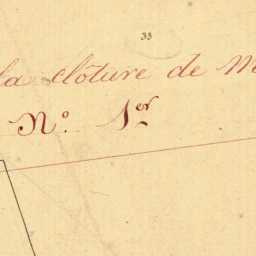 33
la clôture de M
N.º 1.er